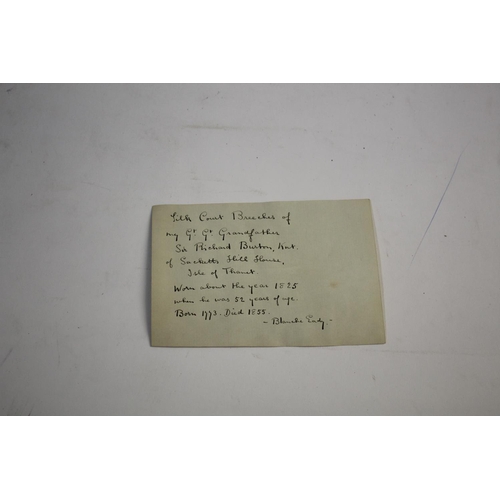 Silk Court Breeches of
my Gt Gt Grandfather
Sir Richard Burton, Knt.
of Sacketts Hill House,
Isle of Thanet
Worn about the year 1825
when he was 52 years of age.
Born 1773. Died 1855.
- Blanche Eady -